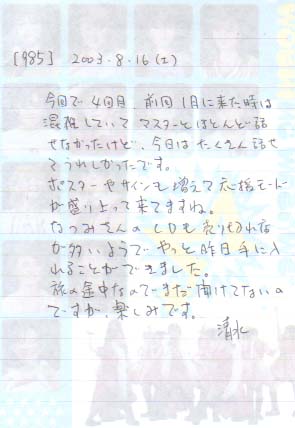 [985] 2003.8.16(土)
今回で4回目、前回1月に来た時は
混雑していてマスターとほとんど話
せなかったけど、今日はたくさん話せ
てうれしかったです。
ポスターやサインも増えて応援モード
が盛り上って来てますね。
なつみさんのCDも売り切れな
が多いようでやっと昨日手に入
れることができました。
旅の途中なのでまだ聞けてないの
ですが、楽しみです。
清水